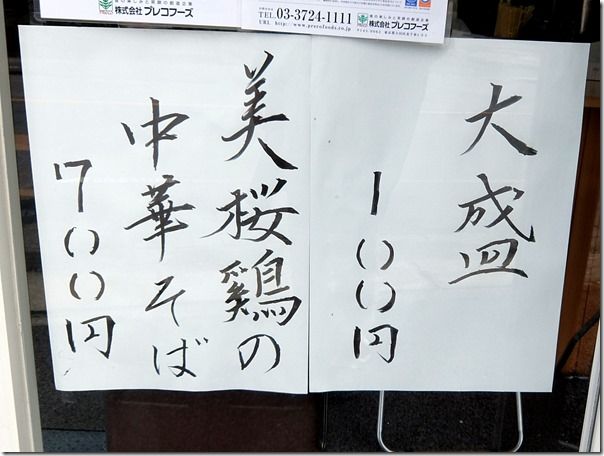 株式会社 プレコフーズ
TEL.03-3724-1111
URL http://www.precofoods.co.jp
株式会社 プレコフーズ
大盛
100円
美桜鶏の
中華そば
700円